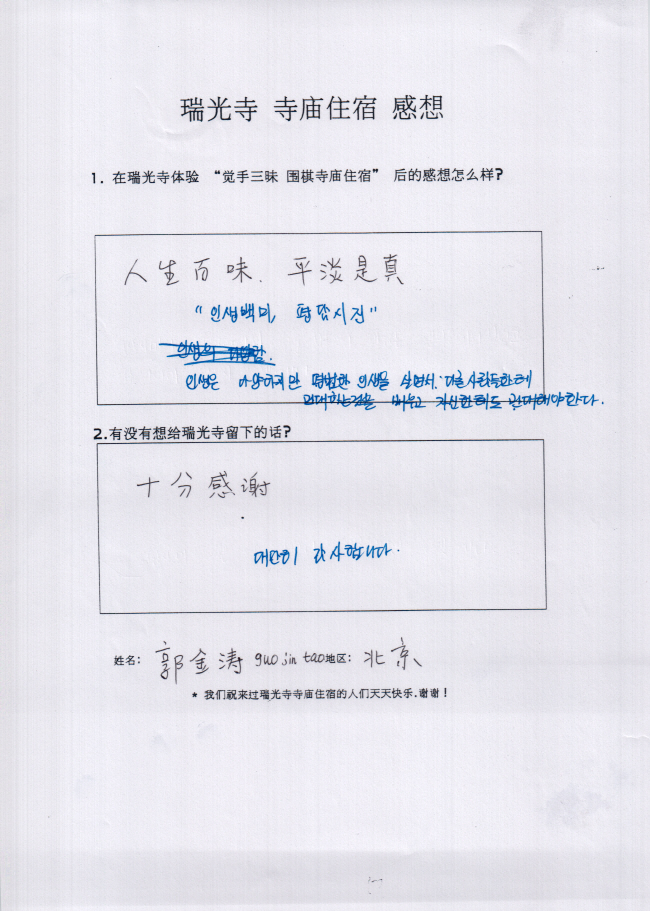 瑞光寺 寺庙住宿 感想
1. 在瑞光寺体验 “觉手三昧 围棋寺庙住宿” 后的感想怎么样?
人生百味. 平淡是真
"인생백미, 평담시진"
인생은 다양하지만 평범한 인생을 살면서. 다른 사람들한테
관대하는것을 배우고 자신한테도 관대해야한다.
2.有没有想给瑞光寺留下的话?
十分感谢
대단히 감사합니다.
姓名: 郭金涛 guo jin tao 地区: 北京
* 我们祝来过瑞光寺寺庙住宿的人们天天快乐.谢谢!